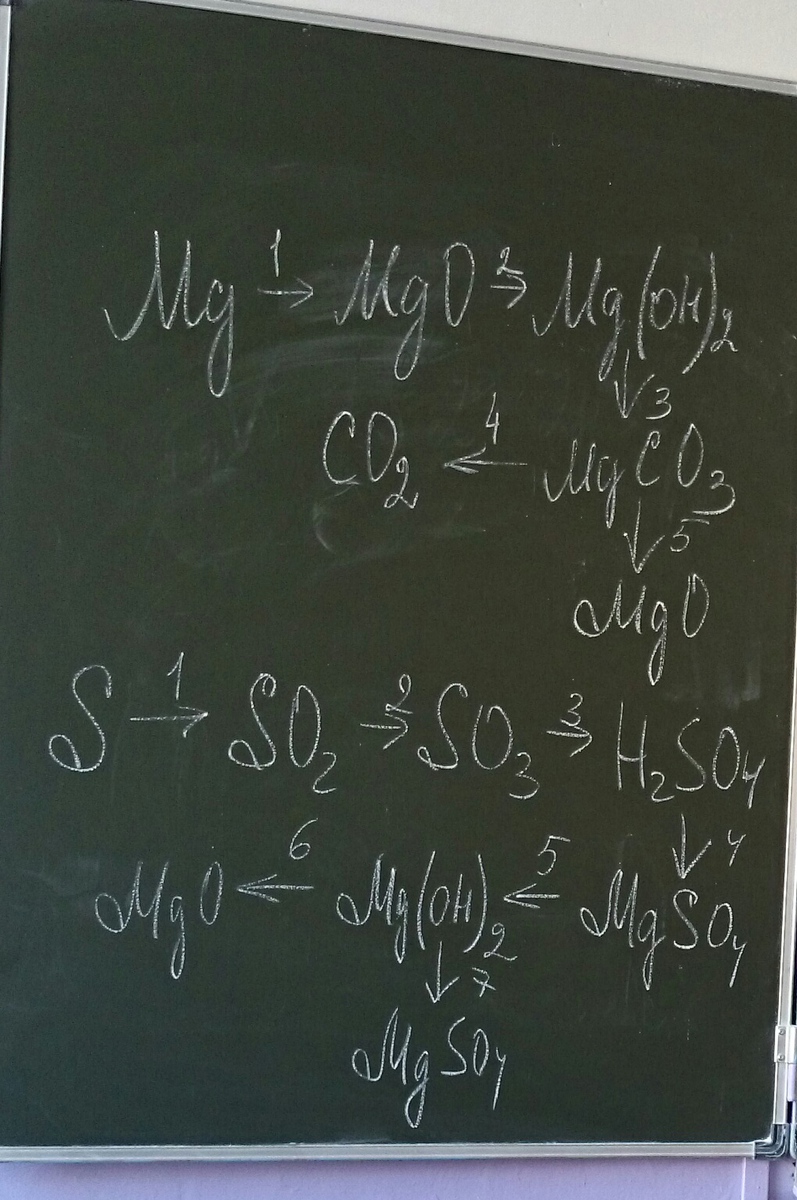 Mg →1 MgO →2 Mg(OH)₂
↓3
CO₂ ←4 MgCO₃
↓5
MgO
S →1 SO₂ →2 SO₃ →3 H₂SO₄
↓4
MgO ←6 Mg(OH)₂ ←5 MgSO₄
↓7
MgSO₄